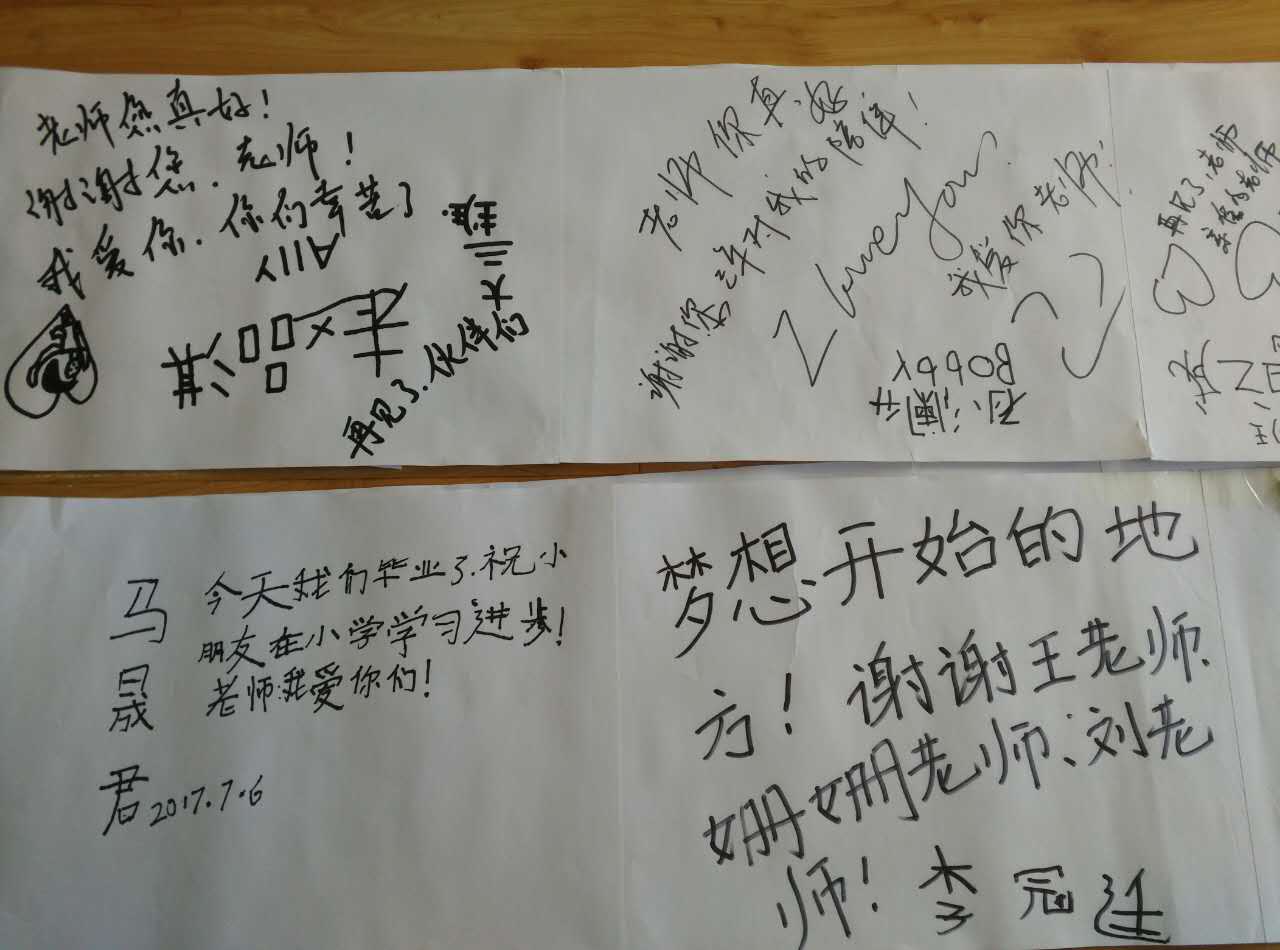 老师您真好!
谢谢您.老师!
我爱你.你们辛苦了
Ally
大三班
再见了.伙伴们
老师你真好
谢谢你三年对我的陪伴!
I Love You
我爱你老师!
Bobby
再见了,老师
亲爱的老师
马晟君
今天我们毕业了.祝小
朋友在小学学习进步!
老师我爱你们!
2017.7.6
梦想开始的地
方!谢谢王老师、
姗姗老师、刘老
师!李冠廷